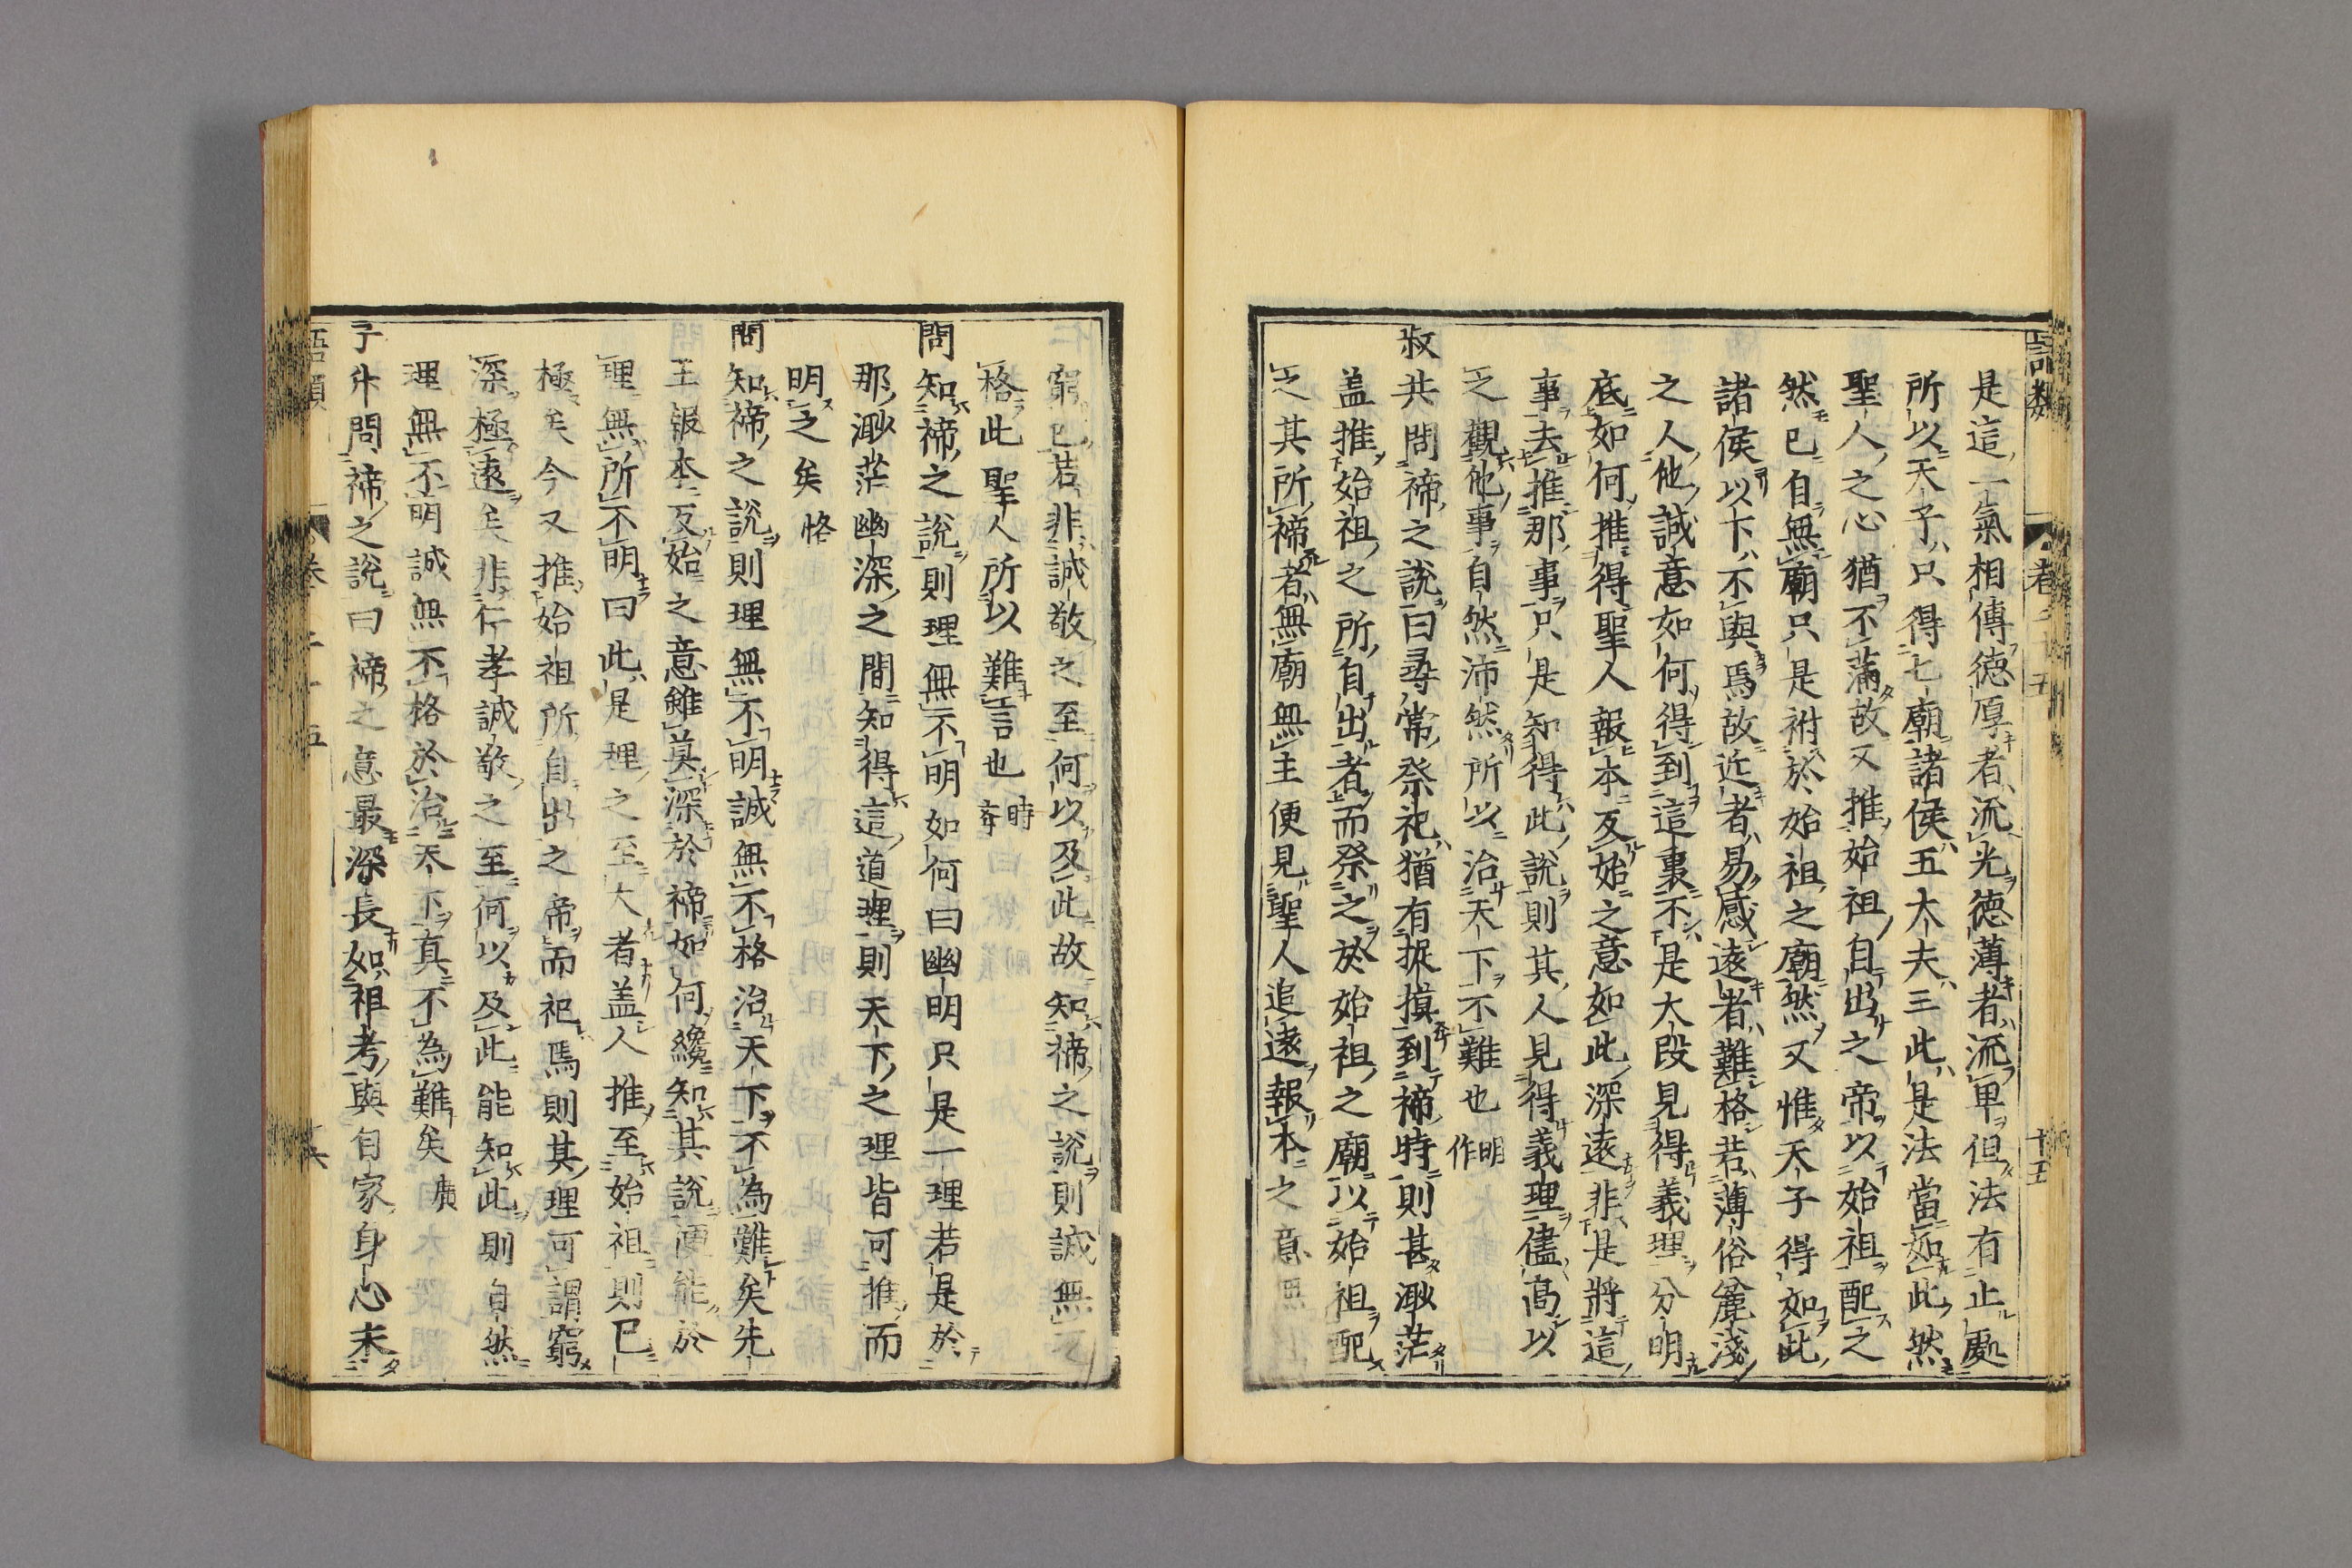 語類 卷二十五 十五
是這一氣相傳德厚者流光德薄者流卑但法有止處
所以天子只得七廟諸侯五大夫三此是法當如此然
聖人之心猶不滿故又推始祖自出之帝以始祖配之
然已自無廟只是祔於始祖之廟然又惟天子得如此
諸侯以下不與焉故近者易感遠者難格若薄俗麄淺
之人他誠意如何得到這裏不是大段見得義理分明
底如何推得聖人報本反始之意如此深遠非是將這
事去推那事只是知得此說則其人見得義理儘高以
之觀他事自然沛然所以治天下不難也 明作
叔共問禘之說曰尋常祭祀猶有捉摸到禘時則甚渺茫
盖推始祖之所自出者而祭之於始祖之廟以始祖配
之其所禘者無廟無主便見聖人追遠報本之意無
窮已若非誠敬之至何以及此故知禘之說則誠無不
格此聖人所以難言也 時舉
問知禘之說則理無不明如何曰幽明只是一理若是於
那渺茫幽深之間知得這道理則天下之理皆可推而
明之矣 恪
問知禘之說則理無不明誠無不格治天下不為難矣先
王報本反始之意雖莫深於禘如何纔知其說便能於
理無所不明曰此是理之至大者盖人推至始祖則已
極矣今又推始祖所自出之帝而祀焉則其理可謂窮
深極遠矣非仁孝誠敬之至何以及此能知此則自然
理無不明誠無不格於治天下真不為難矣 廣
子升問禘之說曰禘之意最深長如祖考與自家身心未
語類 卷二十五